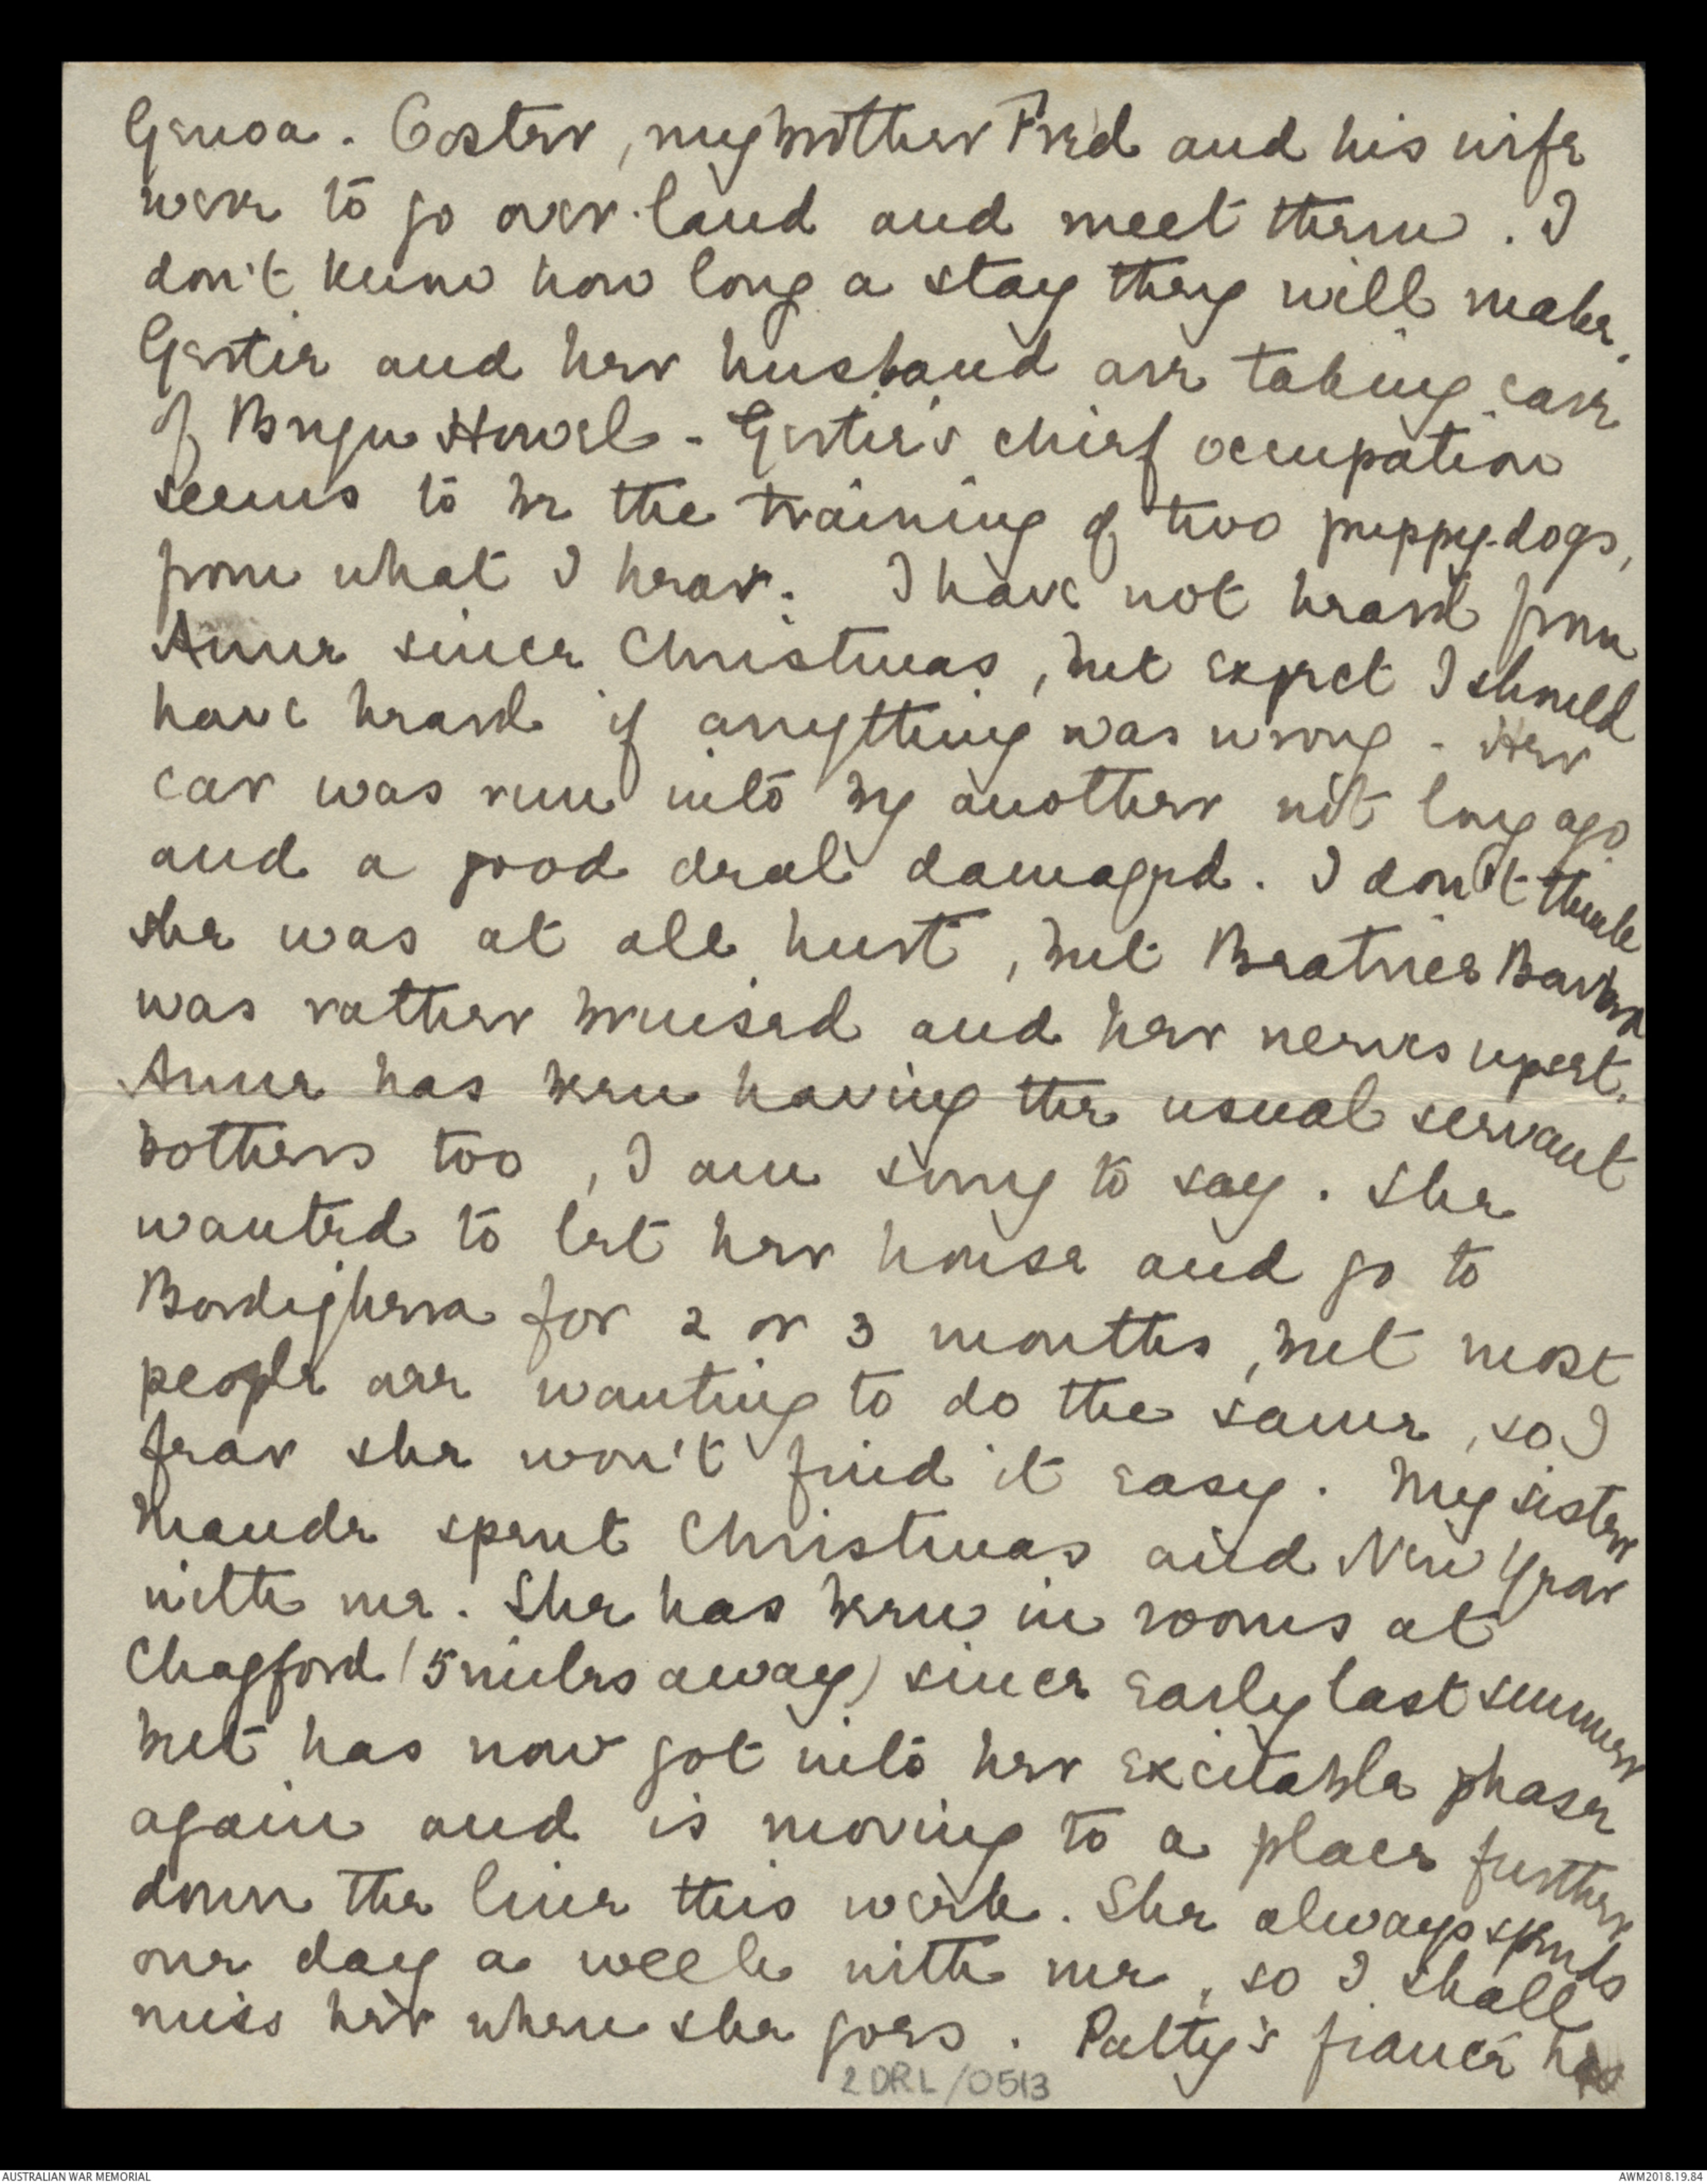 Genoa. Coster, my brother Fred and his wife
were to go over-land and meet them. I
don't know how long a stay they will make.
Gertie and her husband are taking care
of Bryn Howel - Gertie's chief occupation
seems to be the training of two puppy-dogs,
from what I hear. I have not heard from
Anne since Christmas, but expect I should
have heard if anything was wrong - Her
car was run into by another not long ago
and a good deal damaged. I don't think
she was at all hurt, but Beatrice
was rather bruised and her nerves upset.
Anne has been having the usual servant
bothers too, I am sorry to say. She
wanted to let her house and go to
Bordighera for 2 or 3 months, but most
people are wanting to do the same, so I
fear she won't find it easy. My sister
Maude spent Christmas and New Year
with me. She has been in rooms at
Chagford (5 miles away) since early last summer
but has now got into her excitable phase
again and is moving to a place further
down the line this week. She always spends
one day a week with me, so I shall
miss her when she goes. Patty's fiancé has
2DRL/0513
AUSTRALIAN WAR MEMORIAL
AWM2018.19.84